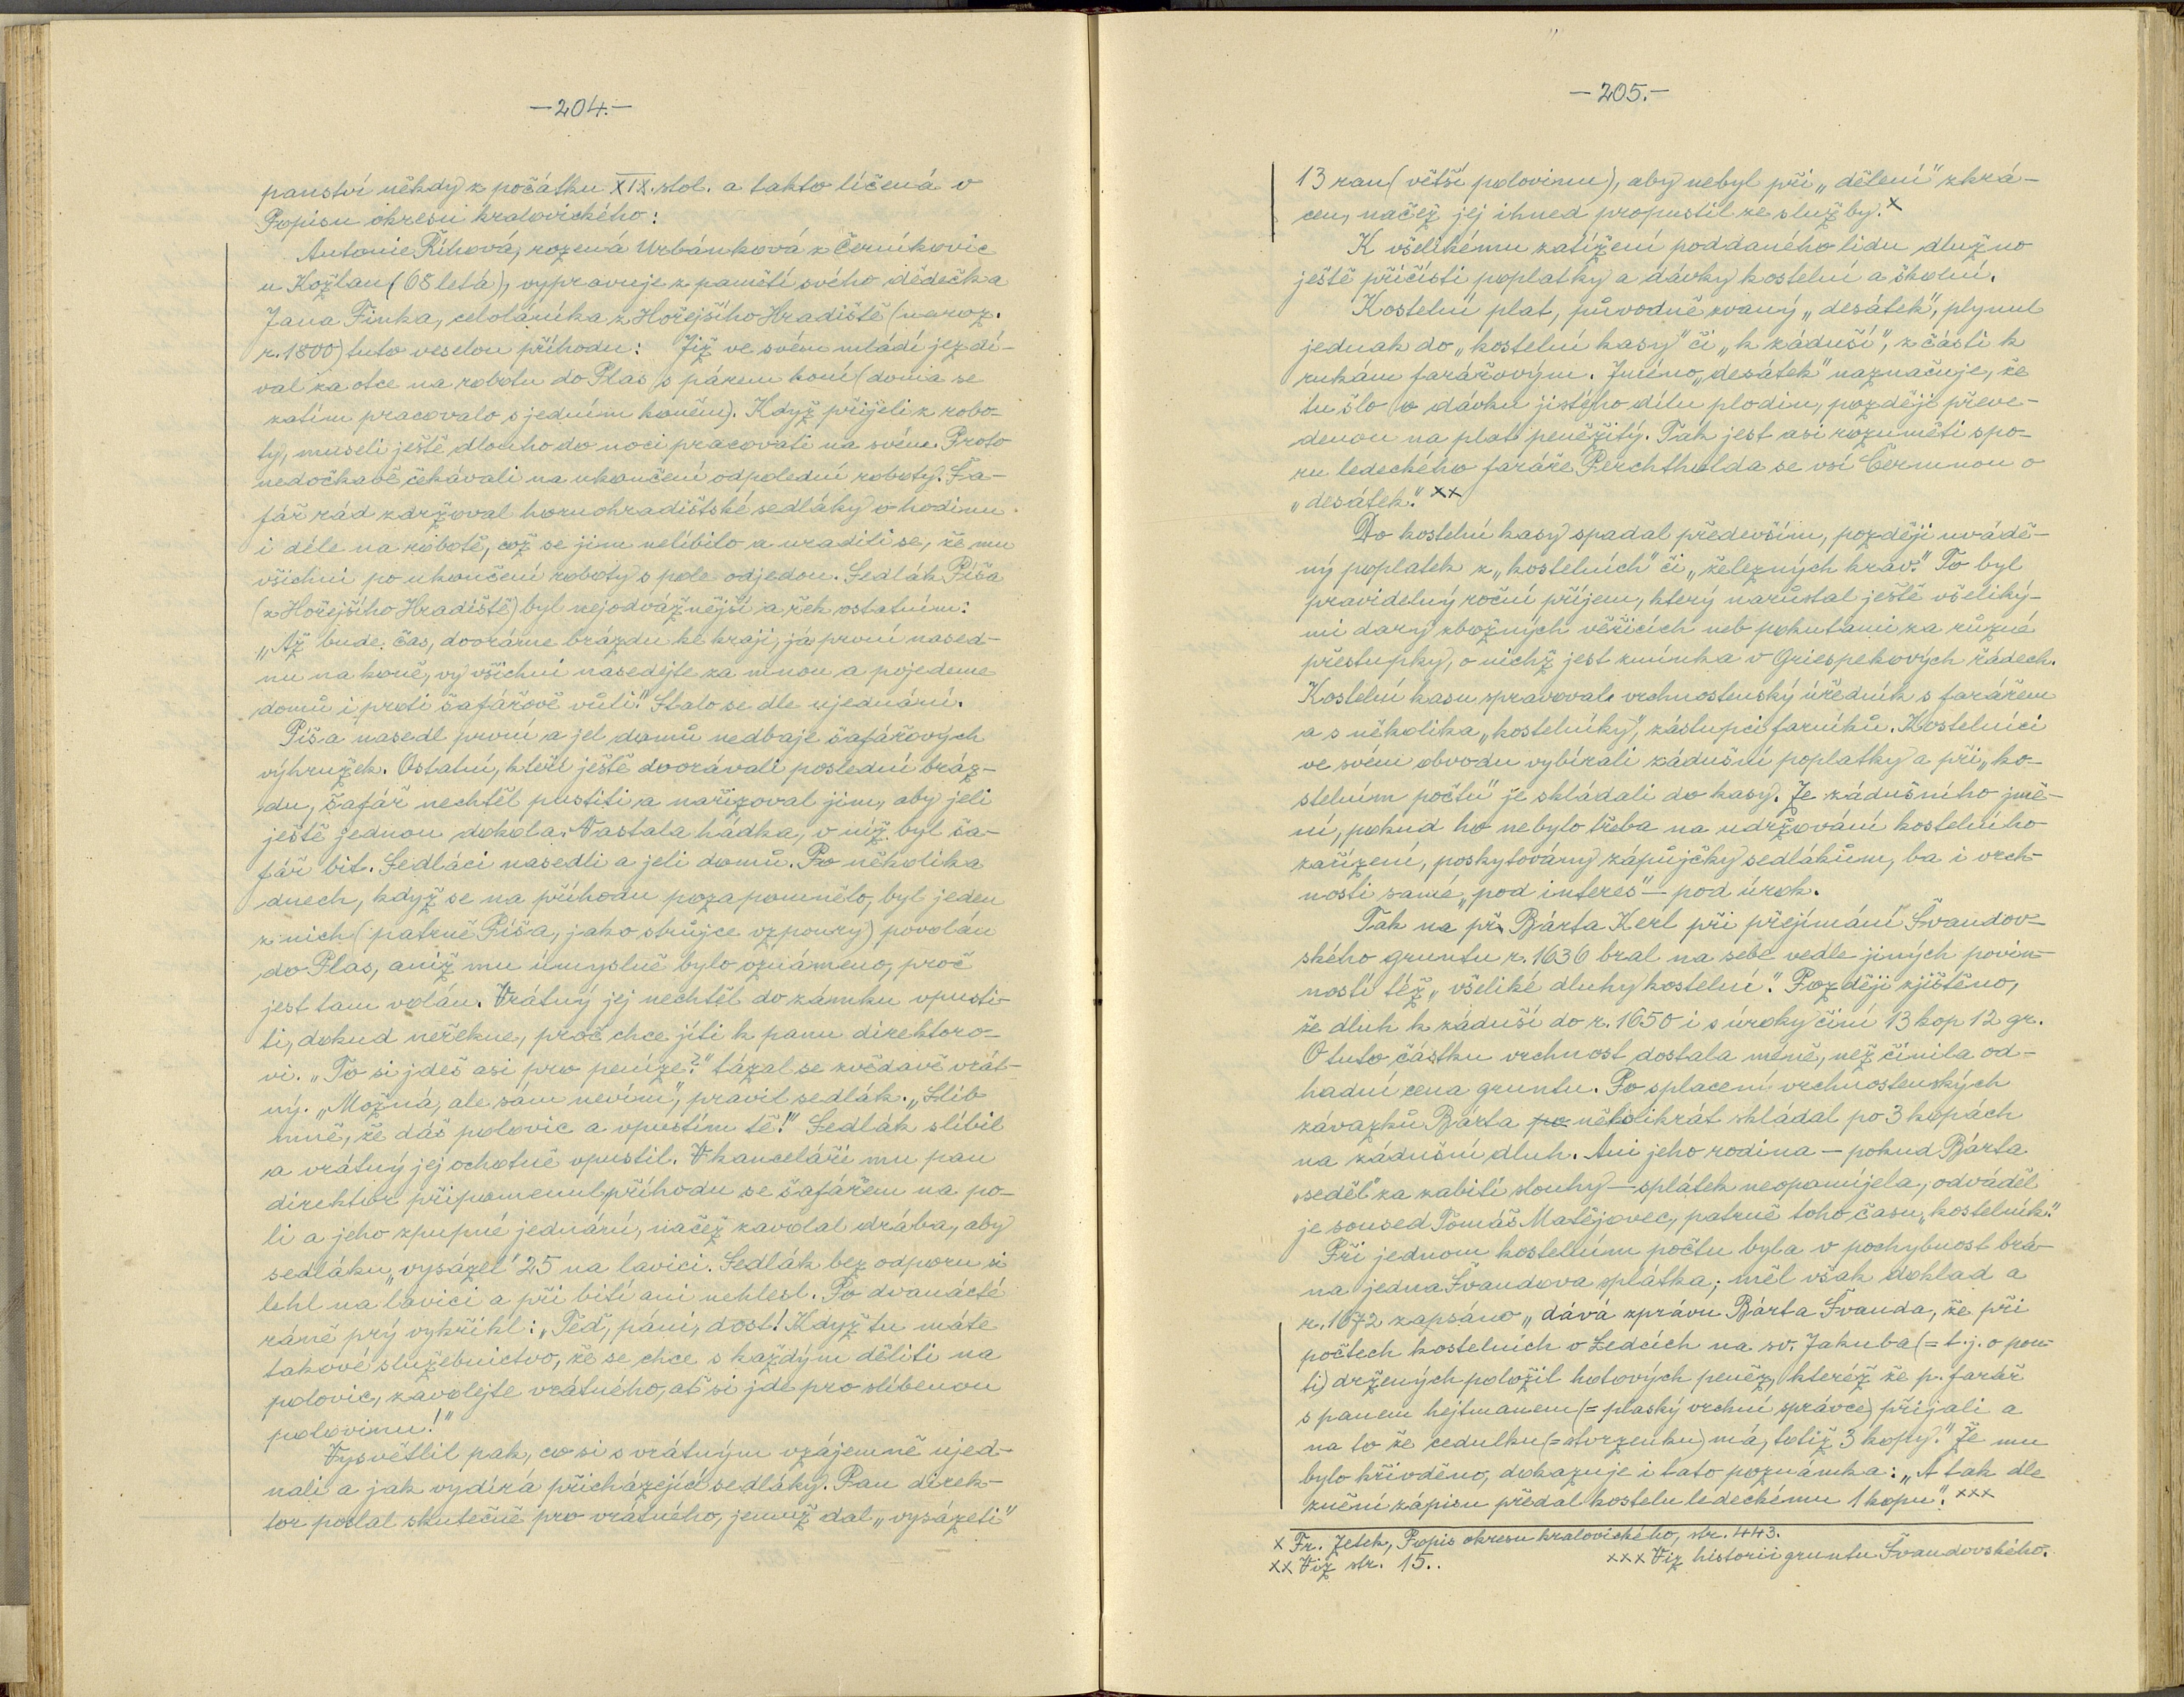 —204.—
panství někdy z počátku XIX. stol. a takto líčená v
Popisu okresu kralovického:
Antonie Říhová, rozená Urbánková z Černíkovic
u Kožlan (68 letá), vypravuje z paměti svého dědečka
Jana Finka, celoláníka z Hořejšího Hradiště (naroz.
r. 1800) tuto veselou příhodu: Již ve svém mládí jezdí-
val za otce na robotu do Plas s párem koní (doma se
zatím pracovalo s jedním koněm). Když přijeli z robo-
ty, museli ještě dlouho do noci pracovati na svém. Proto
nedočkavě čekávali na ukončení odpolední roboty. Ša-
fář rád zdržoval hornohradištské sedláky o hodinu
i déle na robotě, což se jim nelíbilo a uradili se, že mu
všichni po ukončení roboty s pole odjedou. Sedlák Píša
(z Hořejšího Hradiště) byl nejodvážnější a řek ostatním:
„Až bude čas, dooráme brázdu ke kraji, já první nased-
nu na koně, vy všichni nasedejte za mnou a pojedeme
domů i proti šafářově vůli.“ Stalo se dle ujednání.
Píša nasedl první a jel domů nedbaje šafářových
výhružek. Ostatní, kteří ještě doorávali poslední bráz-
du, šafář nechtěl pustiti a nařizoval jim, aby jeli
ještě jednou dokola. Nastala hádka, v níž byl ša-
fář bit. Sedláci nasedli a jeli domů. Po několika
dnech, když se na příhodu pozapomnělo, byl jeden
z nich (patrně Píša, jako strůjce vzpoury) povolán
do Plas, aniž mu úmyslně bylo oznámeno, proč
jest tam volán. Vrátný jej nechtěl do zámku vpusti-
ti, dokud neřekne, proč chce jíti k panu direktoro-
vi. „To si jdeš asi pro peníze?“ tázal se zvědavě vrát-
ný. „Možná, ale sám nevím“, pravil sedlák. „Slib
mně, že dáš polovic a vpustím tě!“ Sedlák slíbil
a vrátný jej ochotně vpustil. V kanceláři mu pan
direktor připomenul příhodu se šafářem na po-
li a jeho zpupné jednání, načež zavolal drába, aby
sedláku „vysázel“ 25 na lavici. Sedlák bez odporu si
lehl na lavici a při bití ani nehlesl. Po dvanácté
ráně prý vykřikl: „Teď, páni, dost! Když tu máte
takové služebnictvo, že se chce s každým děliti na
polovic, zavolejte vrátného, ať si jde pro slíbenou
polovinu!“
Vysvětlil pak, co si s vrátným vzájemně ujed-
nali a jak vydírá přicházející sedláky. Pan direk-
tor poslal skutečně pro vrátného, jemuž dal „vysázeti“
—205.—
13 ran (větší polovinu), aby nebyl při „dělení“ zkrá-
cen, načež jej ihned propustil ze služby. x
K všelikému zatížení poddaného lidu dlužno
ještě přičísti poplatky a dávky kostelní a školní.
Kostelní plat, původně zvaný „desátek“, plynul
jednak do „kostelní kasy“ či „k záduší“, z části k
rukám farářovým. Jméno „desátek“ naznačuje, že
tu šlo o dávku jistého dílu plodin, později převe-
denou na plat peněžitý. Tak jest asi rozuměti spo-
ru ledeckého faráře Perchtholda se vsí Čermnou o
„desátek.“ xx
Do kostelní kasy spadal především, později uvádě-
ný poplatek z „kostelních“ či „železných krav.“ To byl
pravidelný roční příjem, který narůstal ještě všeliký-
mi dary zbožných věřících neb pokutami za různé
přestupky, o nichž jest zmínka v Griespekových řádech.
Kostelní kasu spravoval vrchnostenský úředník s farářem
a s několika „kostelníky“, zástupci farníků. Kostelníci
ve svém obvodu vybírali zádušní poplatky a při „ko-
stelním počtu“ je skládali do kasy. Ze zádušního jmě-
ní, pokud ho nebylo třeba na udržování kostelního
zařízení, poskytovány zápůjčky sedlákům, ba i vrch-
nosti samé „pod interes“ — pod úrok.
Tak na př. Bárta Kerl při přejímání Švandov-
ského gruntu r. 1636 bral na sebe vedle jiných povin-
ností též „všeliké dluhy kostelní“. Později zjištěno,
že dluh k záduší do r. 1650 i s úroky činí 13 kop 12 gr.
O tuto částku vrchnost dostala méně, než činila od-
hadní cena gruntu. Po splacení vrchnostenských
závazků Bárta po několikrát skládal po 3 kopách
na zádušní dluh. Ani jeho rodina — pokud Bárta
„seděl“ za zabití slouhy — splátek neopomíjela, odváděl
je soused Tomáš Matějovec, patrně toho času „kostelník.“
Při jednom kostelním počtu byla v pochybnost brá-
na jedna Švandova splátka; měl však doklad a
r. 1672 zapsáno „dává zprávu Bárta Švanda, že při
počtech kostelních v Ledcích na sv. Jakuba (= t. j. o pou-
ti) držených položil hotových peněz, kteréž že p. farář
s panem hejtmanem (= plaský vrchní správce) přijali a
na to že cedulku (= stvrzenku) má, totiž 3 kopy.“ Že mu
bylo křivděno, dokazuje i tato poznámka: „A tak dle
znění zápisu předal kostelu ledeckému 1 kopu“. xxx
x Fr. Zetek, Popis okresu kralovického, str. 443.
xx Viz str. 15.. xxx Viz historii gruntu Švandovského.